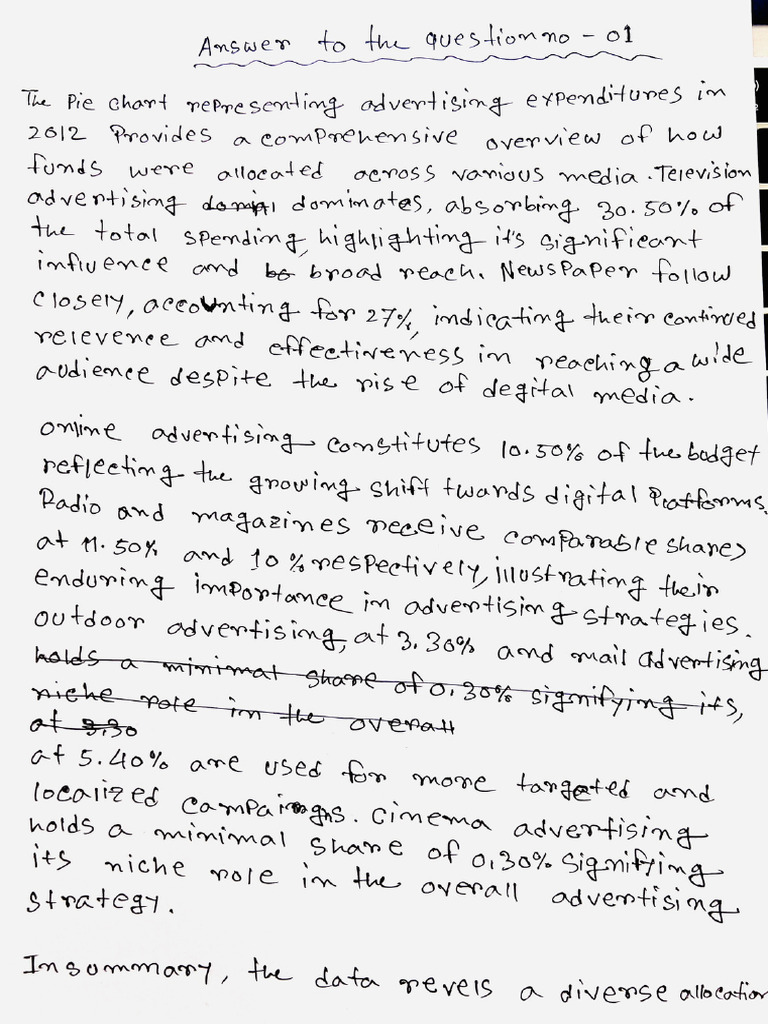 Answer to the question no - 01
The Pie chart representing advertising expenditures in
2012 Provides a comprehensive overview of how
funds were allocated across various media. Television
advertising domin dominates, absorbing 30.50% of
the total spending, highlighting it's significant
influence and be broad reach. Newspaper follow
closely, accounting for 27%, indicating their continued
relevence and effectiveness in reaching a wide
audience despite the rise of degital media.
online advertising constitutes 10.50% of the budget
reflecting the growing shift twards digital Platforms.
Radio and magazines receive comparable shares
at 11.50% and 10% respectively, illustrating their
enduring importance in advertising strategies.
outdoor advertising, at 3.30% and mail advertising
holds a minimal share of 0.30% signifying its,
niche role in the overall
at 3.30
at 5.40% are used for more targeted and
localized campaings. cinema advertising
holds a minimal share of 0.30% signifying
its niche role in the overall advertising
strategy.
In summary, the data revels a diverse allocation